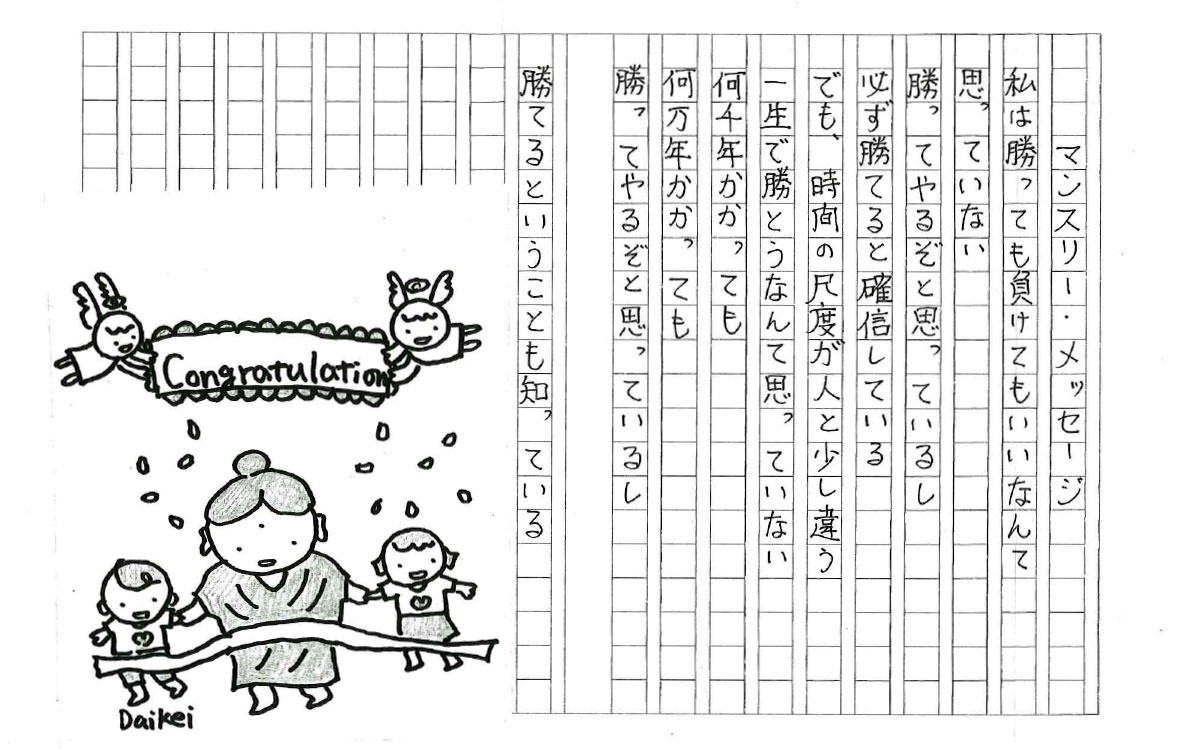 マンスリー・メッセージ
私は勝っても負けてもいいなんて
思っていない
勝ってやるぞと思っているし
必ず勝てると確信している
でも、時間の尺度が人と少し違う
一生で勝とうなんて思っていない
何千年かかっても
何万年かかっても
勝ってやるぞと思っているし
勝てるということも知っている
Congratulation
Daikei